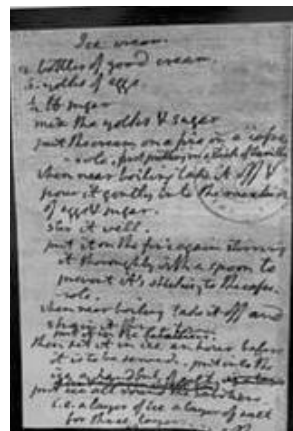 Ice cream.
2. bottles of good cream.
6. yolks of eggs.
½ lb sugar
mix the yolks & sugar
put the cream on a fire in a casse
-role, first putting in a stick of Vanilla.
when near boiling take it off &
pour it gently into the mixture
of eggs & sugar.
stir it well.
put it on the fire again stirring
it thoroughly with a spoon to
prevent it's sticking to the casse-
role.
when near boiling take it off and
strain it
put it in the
then set it in ice an hour before
it is to be served. put into the
ice a handful of salt
put ice all round the
i.e. a layer of ice a layer of salt
for three layers.